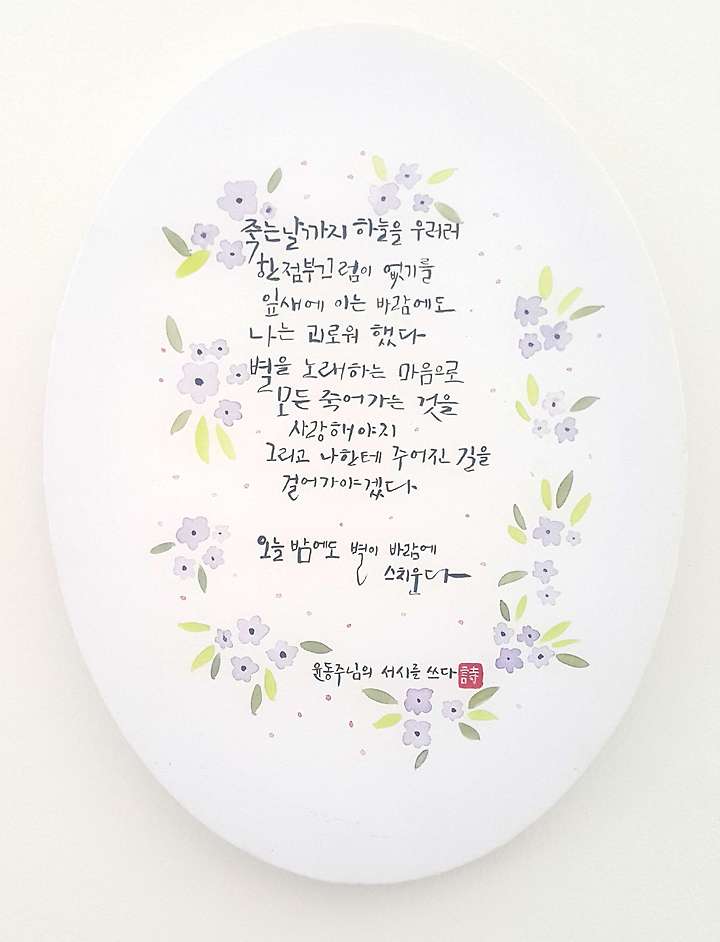 죽는날까지 하늘을 우러러
한점부끄럼이 없기를
잎새에 이는 바람에도
나는 괴로워 했다
별을 노래하는 마음으로
모든 죽어가는 것을
사랑해야지
그리고 나한테 주어진 길을
걸어가야겠다
오늘 밤에도 별이 바람에
스치운다
윤동주님의 서시를 쓰다 詩